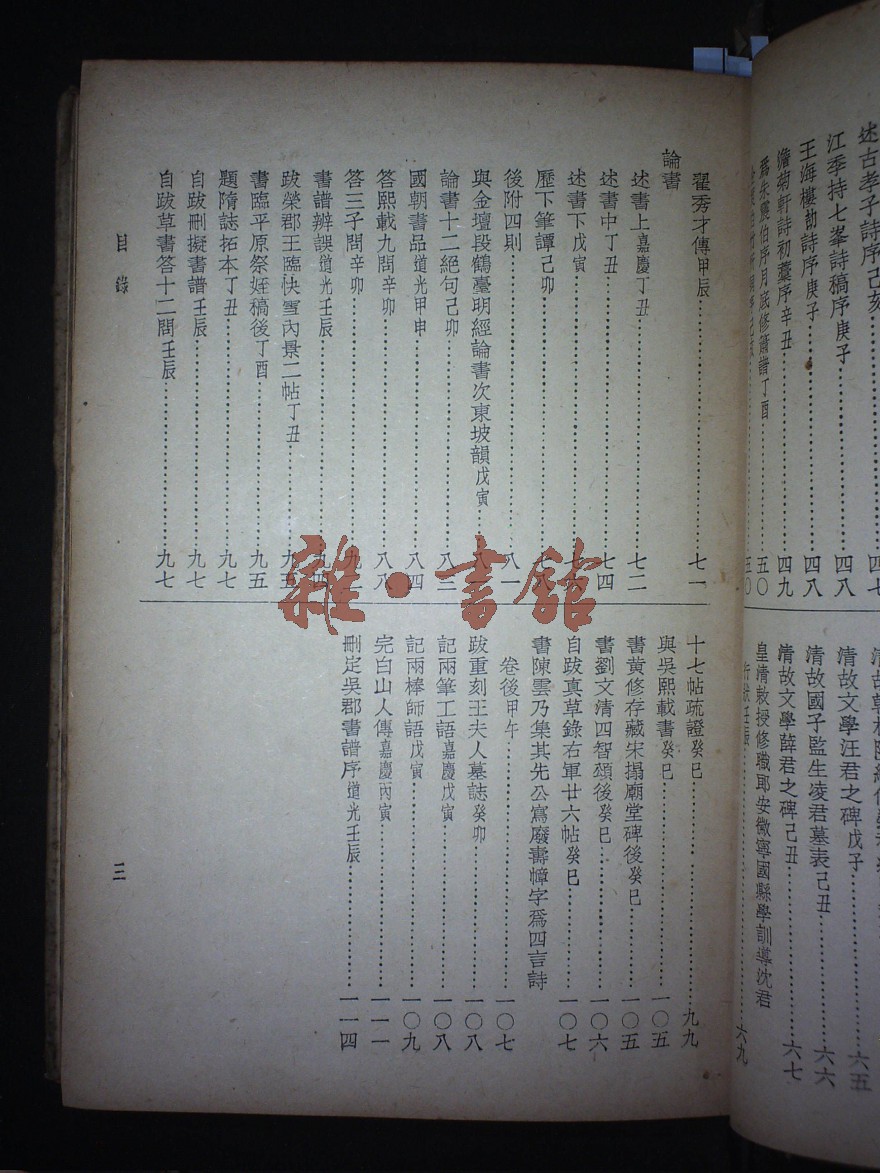 述古孝子詩序己亥
江季持七峯詩稿序庚子……四八
王海樓劫詩序庚子……四八
澹菊軒詩初藁序辛丑……四九
爲朱震伯序月底修簫譜丁酉……五〇
清故文學汪君之碑戊子……六五
清故國子監生凌君墓表己丑……六六
清故文學薛君之碑己丑……六七
皇清敕授修職郎安徽寧國縣學訓導沈君
行狀壬辰……六九
翟秀才傳甲辰……七一
論書
述書上嘉慶丁丑……七二
述書中丁丑……七四
述書下戊寅
歷下筆譚己卯
後附四則……八一
與金壇段鶴臺明經論書次東坡韻戊寅
論書十二絕句己卯……八三
國朝書品道光甲申……八四
答熙載九問辛卯……八八
答三子問辛卯
書譜辨誤道光壬辰……九四
跋榮郡王臨快雪內景二帖丁丑……九五
書臨平原祭姪稿後丁酉……九五
題隋誌拓本丁丑……九七
自跋刪擬書譜壬辰……九七
自跋草書答十二問壬辰……九七
十七帖疏證癸巳……九九
與吳熙載書癸巳……一〇五
書黃修存藏宋搨廟堂碑後癸巳……一〇五
書劉文清四智頌後癸巳……一〇六
自跋真草錄右軍廿六帖癸巳……一〇七
書陳雲乃集其先公寫廢壽幛字爲四言詩
卷後甲午……一〇七
跋重刻王夫人墓誌癸卯……一〇八
記兩筆工語嘉慶戊寅……一〇八
記兩棒師語戊寅……一〇九
完白山人傳嘉慶丙寅……一一一
刪定吳郡書譜序道光壬辰……一一四
目錄
三
雜·書館